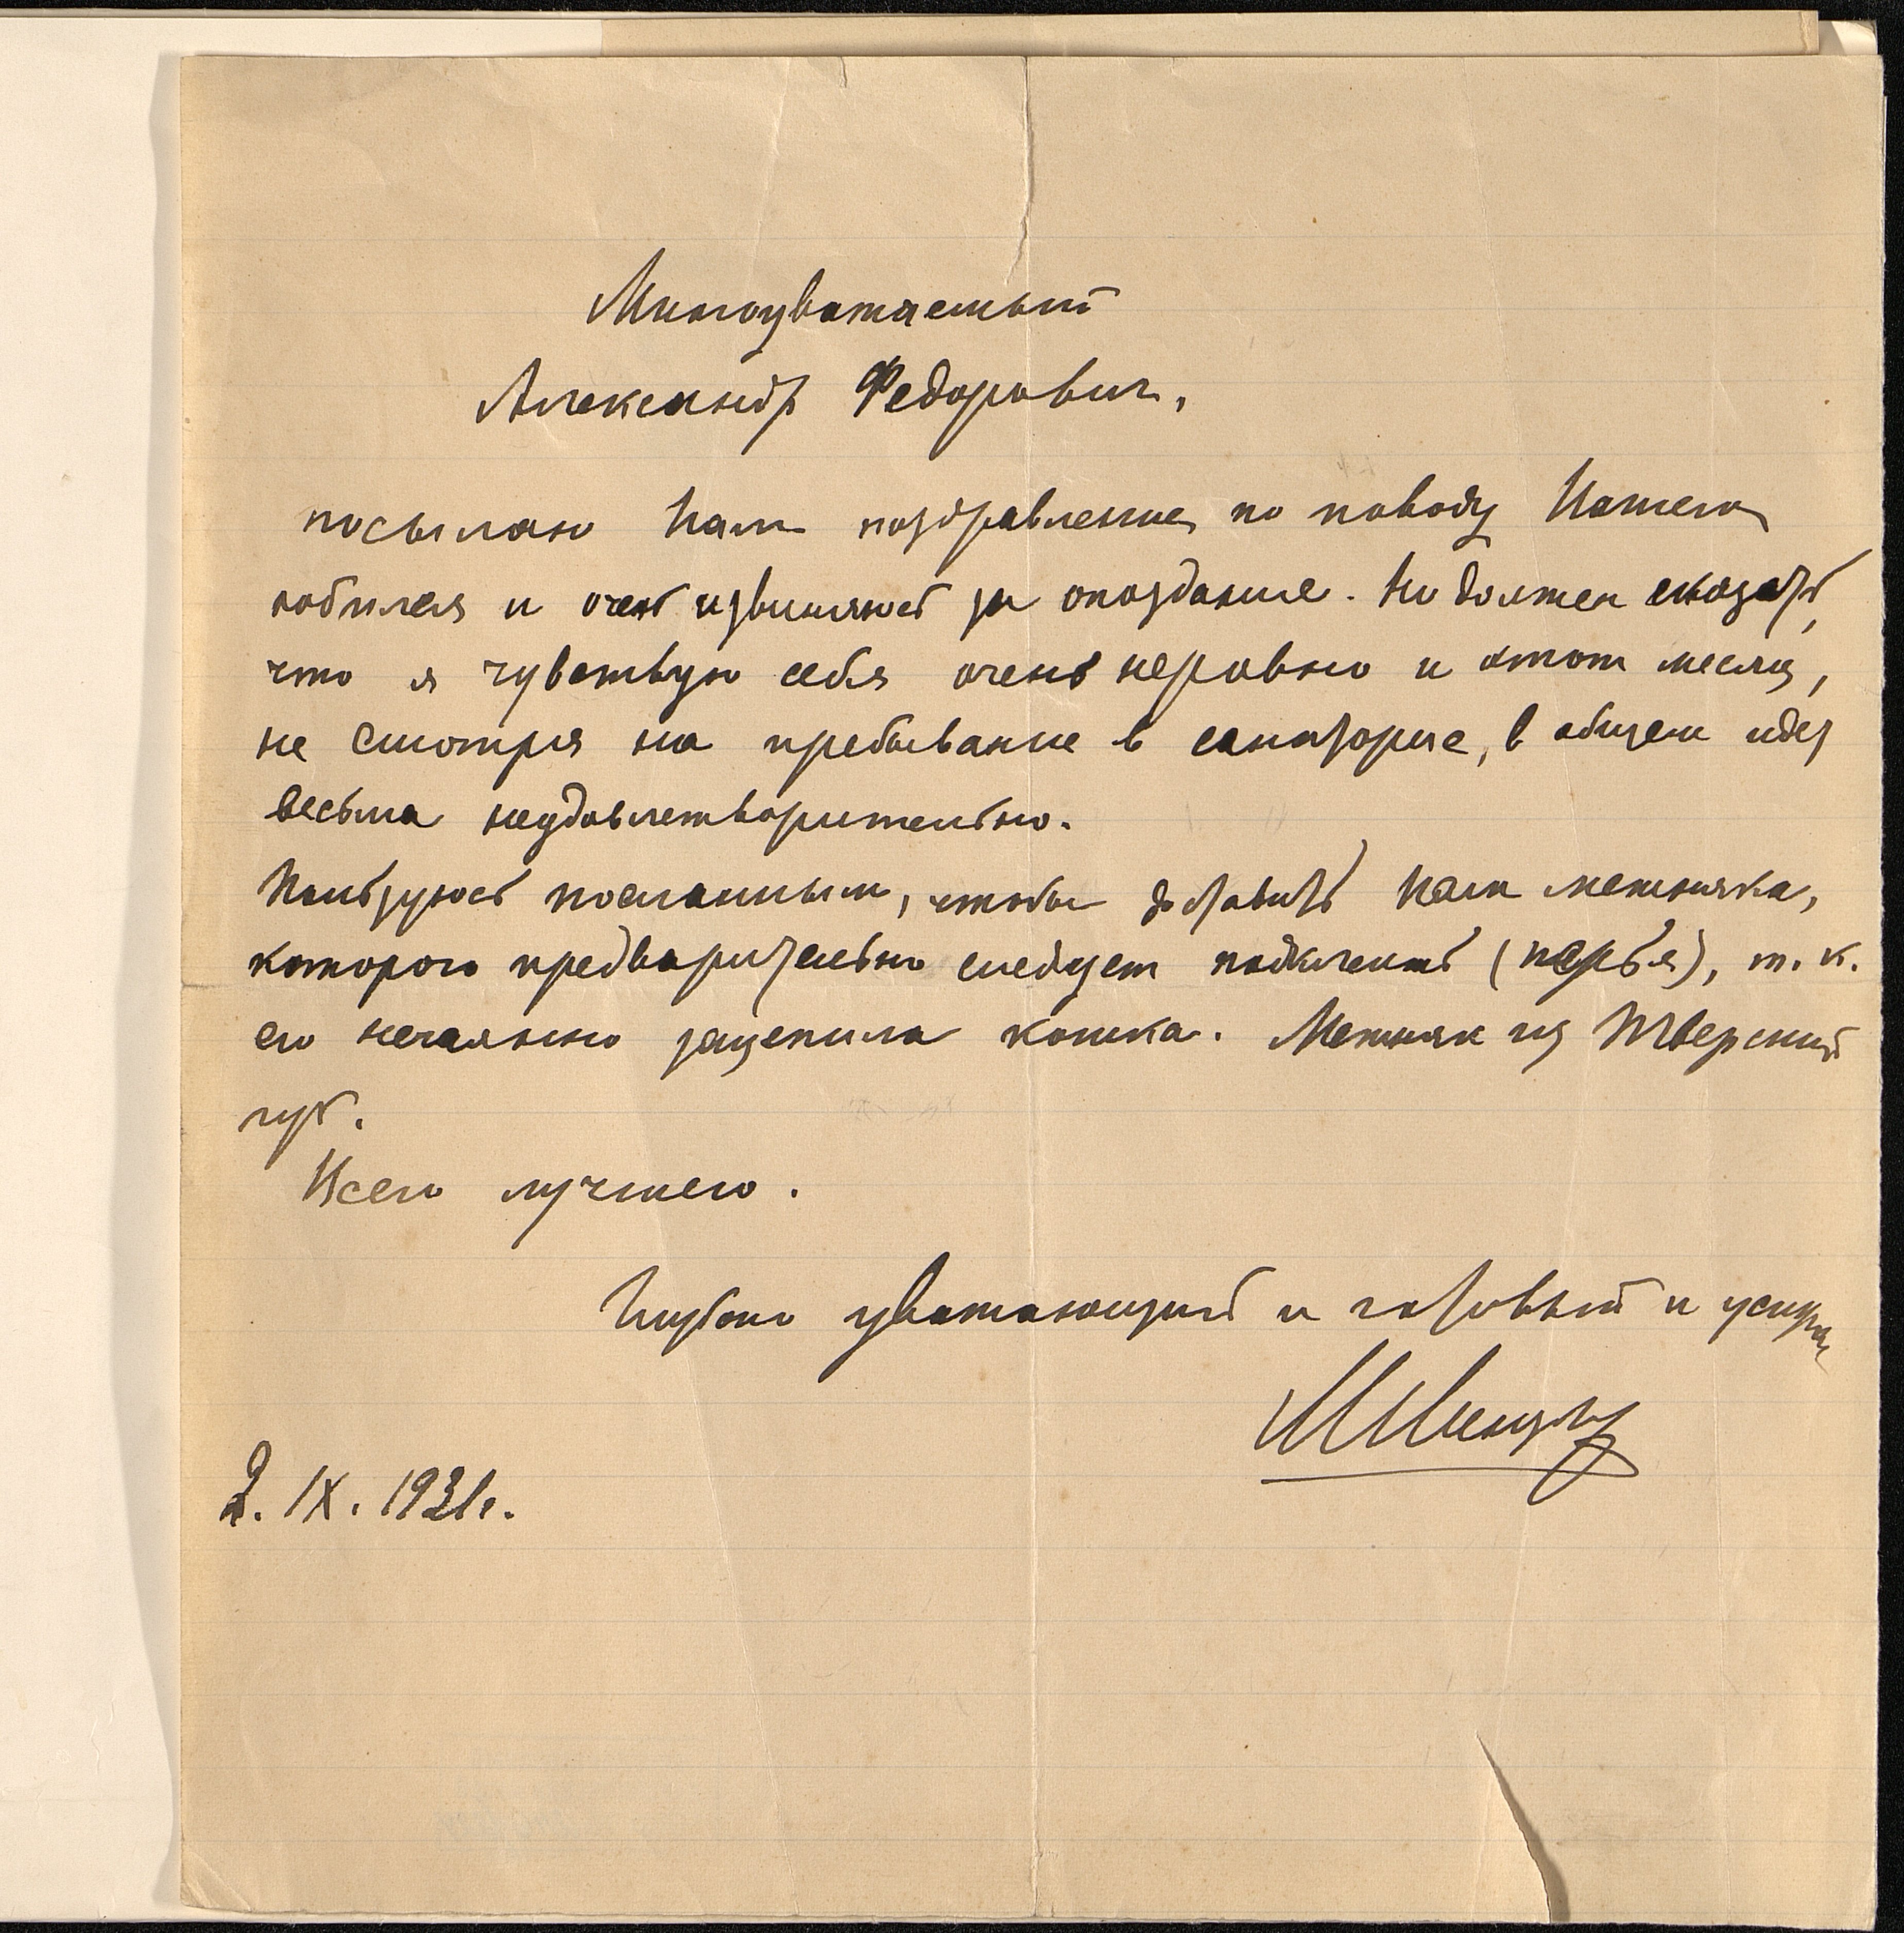 Многоуважаемый
Александр Федорович,
посылаю Вам поздравление по поводу Вашего
юбилея и очень извиняюсь за опоздание. Но должен сказать,
что я чувствую себя очень неровно и этот месяц,
не смотря на пребывание в санатории, в общем идет
весьма неудовлетворительно.
Пользуюсь посланным, чтобы доставить Вам межняка,
которого предварительно следует подклеить (перья), т. к.
его нечаянно зацепила кошка. Межняк из Тверской
губ.
Всего лучшего.
Глубоко уважающий и готовый к услугам
2. IX. 1931 г.